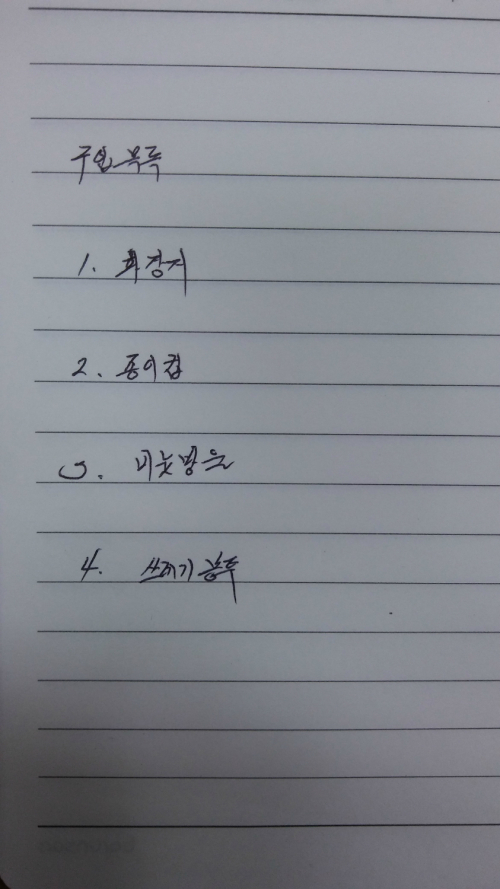 구입목록
1. 화장지
2. 종이컵
3. 비눗방울
4. 쓰레기봉투